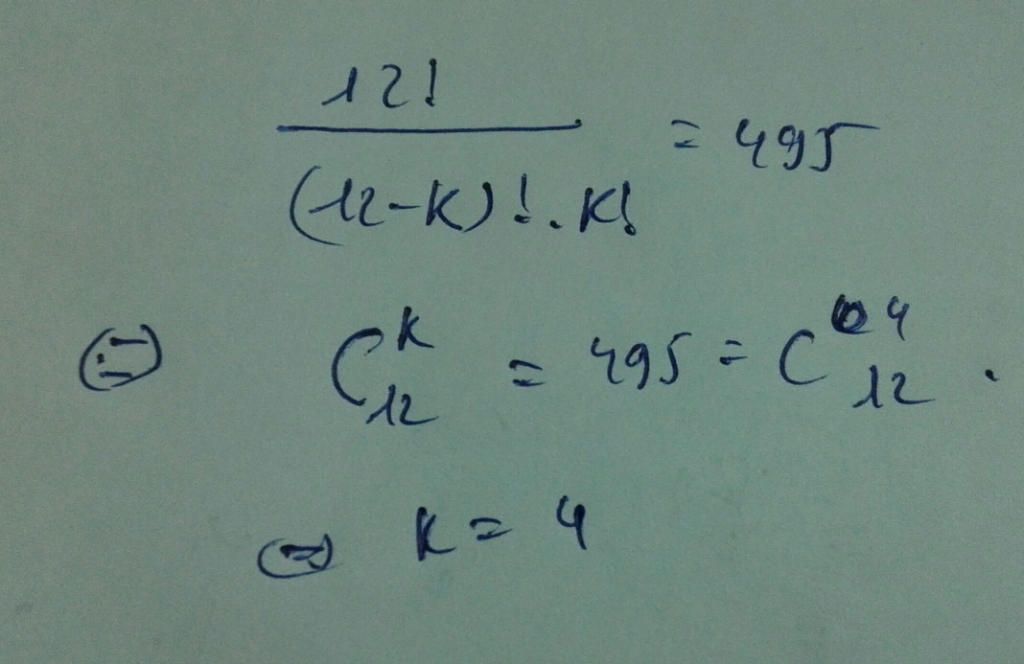 12!
(12-k)!.k! = 495
⇔ C^k_12 = 495 = C^4_12.
⇔ k = 4